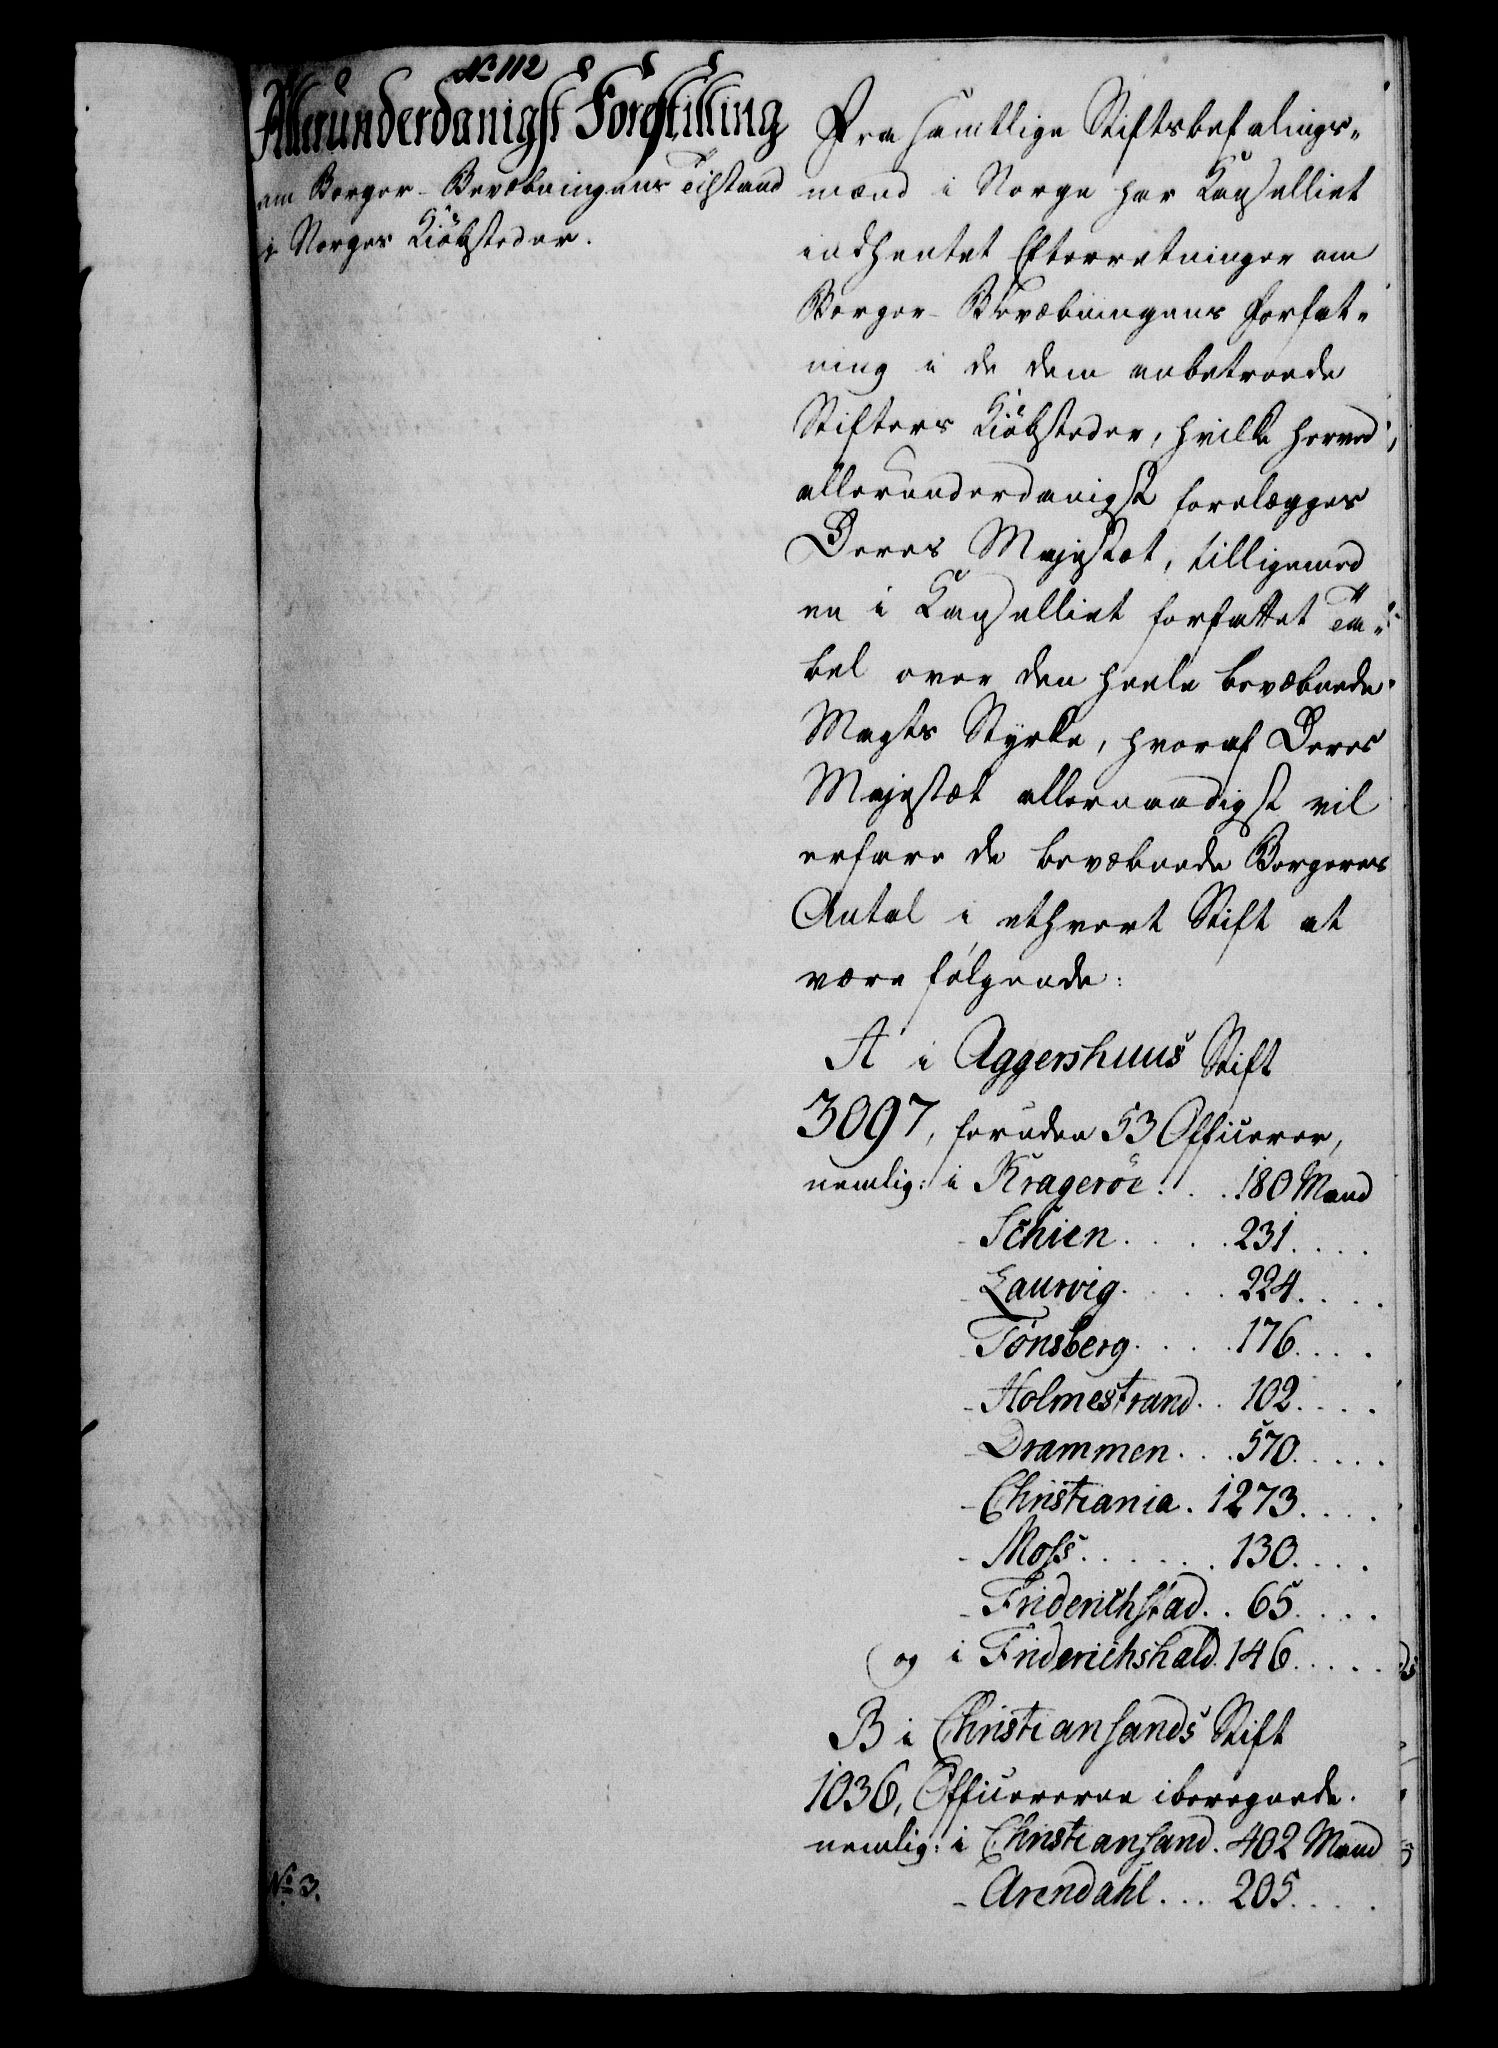 No 112
Allerunderdanigst Forestilling
om Borger-Bevæbningens Tilstand
i Norges Kiöbstæder.
Fra samtlige Stiftsbefalings-
mænd i Norge har Kancelliet
indhentet Efterretninger om
Borger-Bevæbningens Forfat-
ning i de dem anbetroede
Stifters Kiöbstæder, hvilke herved
allerunderdanigst forelægges
Deres Majestæt, tilligemed
en i Kancelliet forfattet Ta-
bel over den heele bevæbnede
Magts Styrke, hvoraf Deres
Majestæt allernaadigst vil
erfare de bevæbnede Borgeres
Antal i ethvert Stift at
være følgende:
A i Aggershuus Stift
3097, foruden 53 Officerer,
nemlig: i Krageröe . . . 180 Mand
- Schien . . . . 231 . . . .
- Laurvig . . . . 224 . . . .
- Tönsberg . . . . 176 . . . .
- Holmestrand . . 102 . . . .
- Drammen . . . 570 . . . . .
- Christiania . 1273 . . . .
- Moss . . . . . . 130 . . . .
- Friderichstad . . 65 . . . .
og i Friderichshald 146 . . . . .
B i Christiansands Stift
1036, Officererne iberegnede.
nemlig: i Christiansand . 402 Mand
- Arendahl . . . 205 . . . .
No 3.